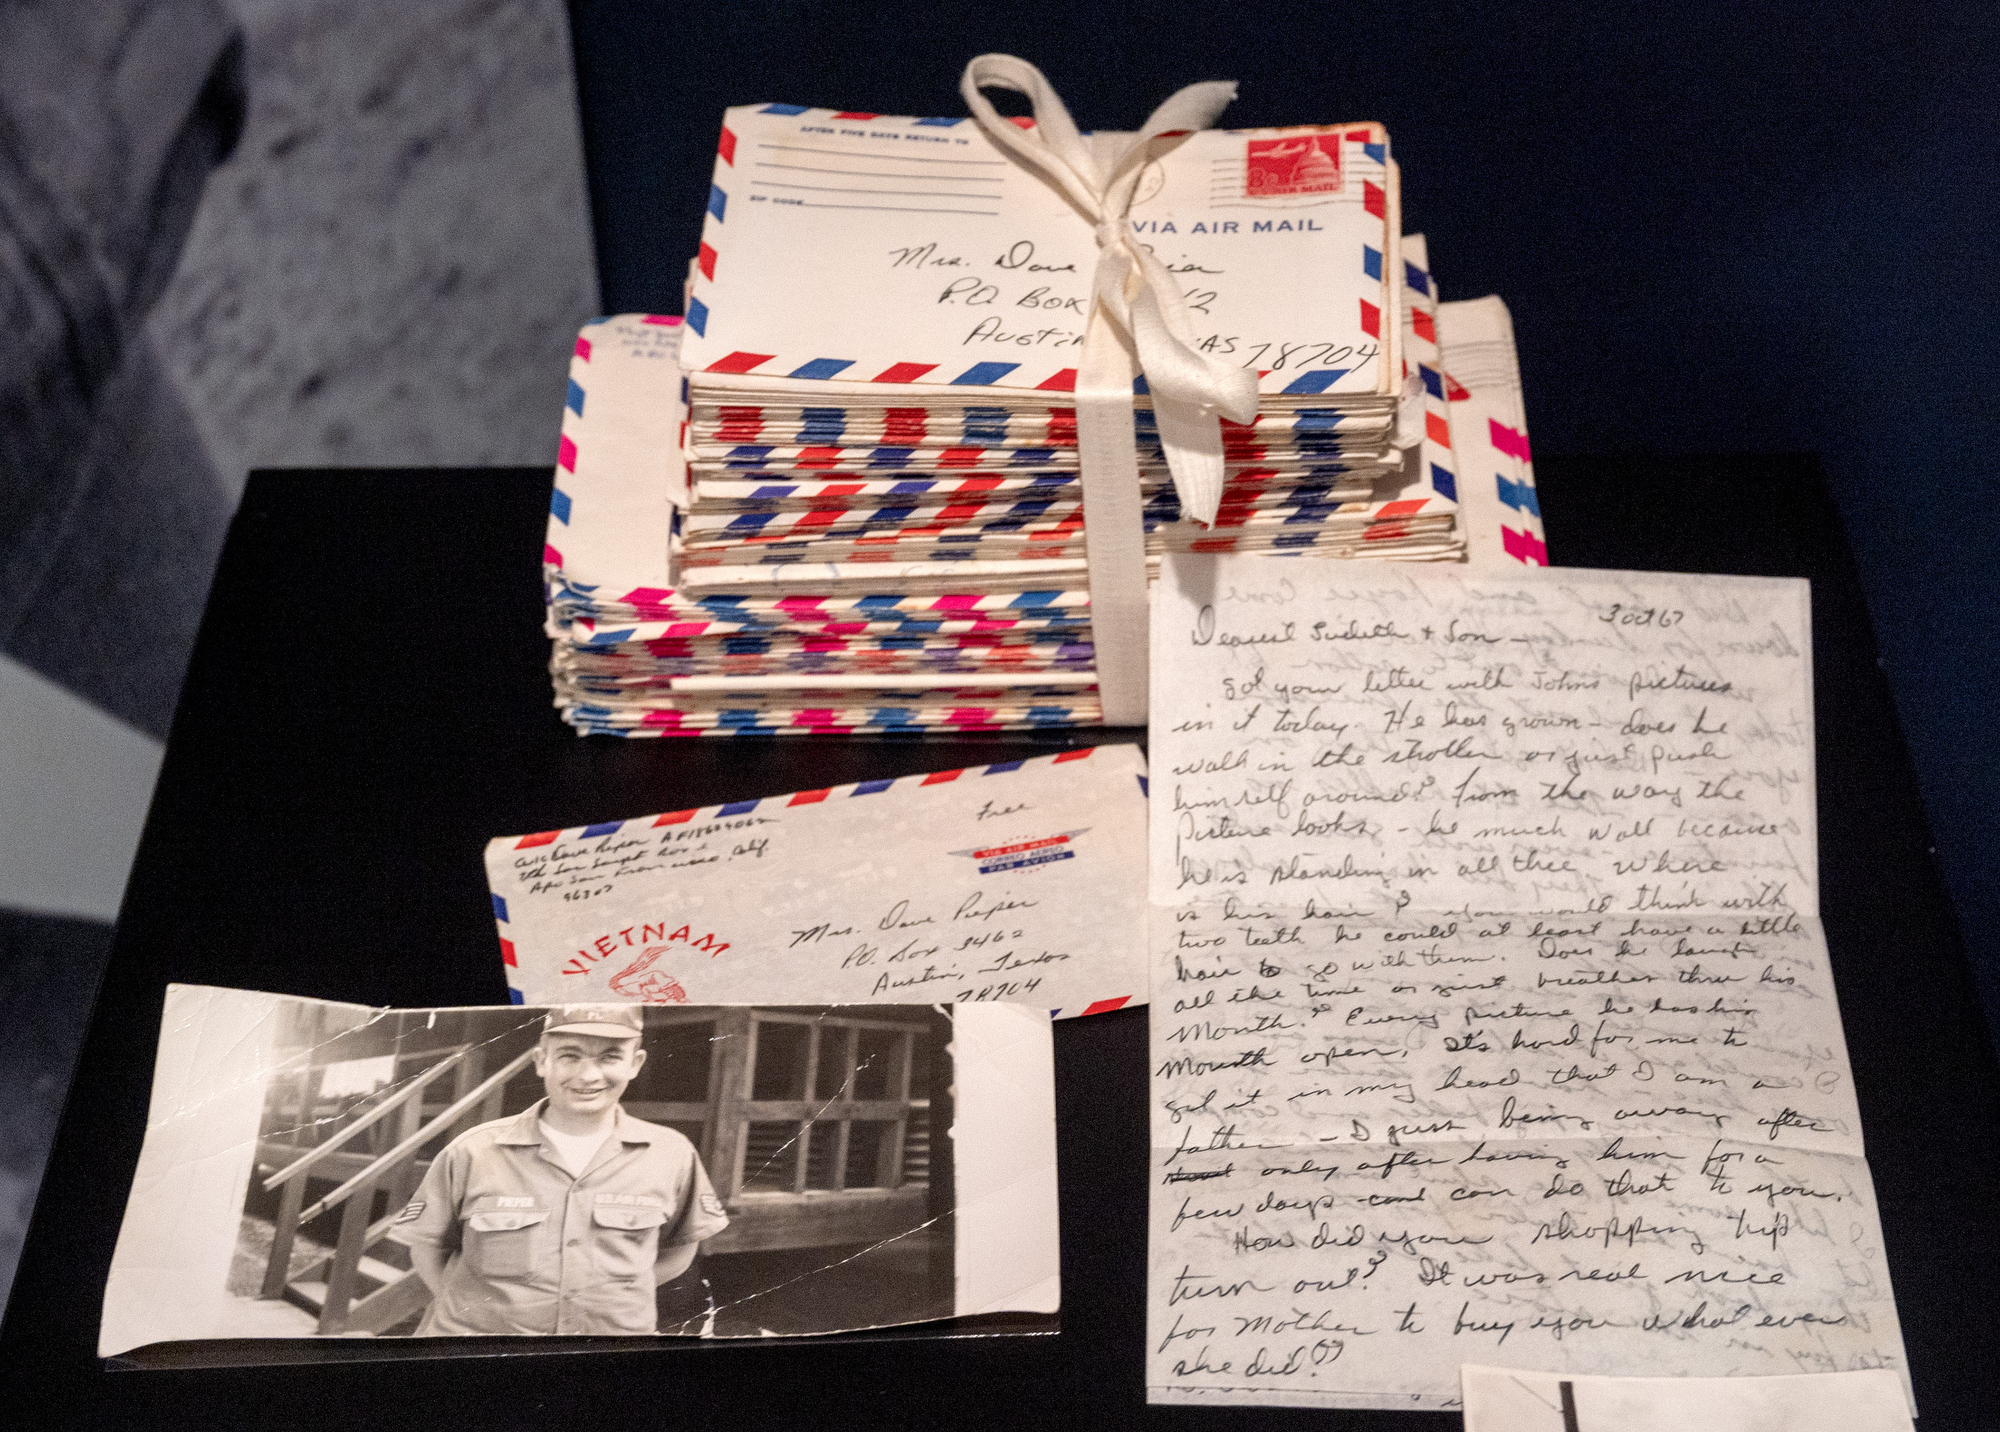 AFTER FIVE DAYS RETURN TO
ZIP CODE
8c
AIR MAIL
VIA AIR MAIL
Mrs. Dave
P.O. Box 12
Austin AS 78704
Free
VIA AIR MAIL
CORREO AEREO
PAR AVION
Apo San Francisco, Calif.
96307
VIETNAM
Mrs. Dave Pieper
P.O. Box 3462
Austin, Texas
78704
PIEPER U.S. AIR FORCE
3 Oct 67
Dearest & Son –
got your letter with Johns pictures
in it today. He has grown – does he
walk in the stroller or just push
himself around? From the way the
Picture looks – he much wall because
he is standing in all thee. Where
is his hair? you would think with
two teeth he could at least have a little
hair to go with them. Does he laugh
all the time or just breathes thru his
Mouth? Every picture he has his
Mouth open. It's hard for me to
get it in my head that I am a
father – I guess being away after
only after having him for a
few days can do that to you.
How did your shopping trip
turn out? It was real nice
for Mother to buy you what ever
she did??